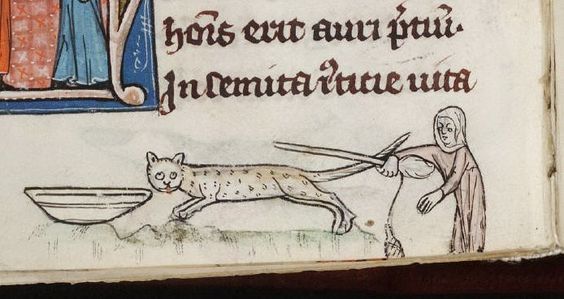 hoīs erit auri p̄tiū.
In semita iꝰticie uita